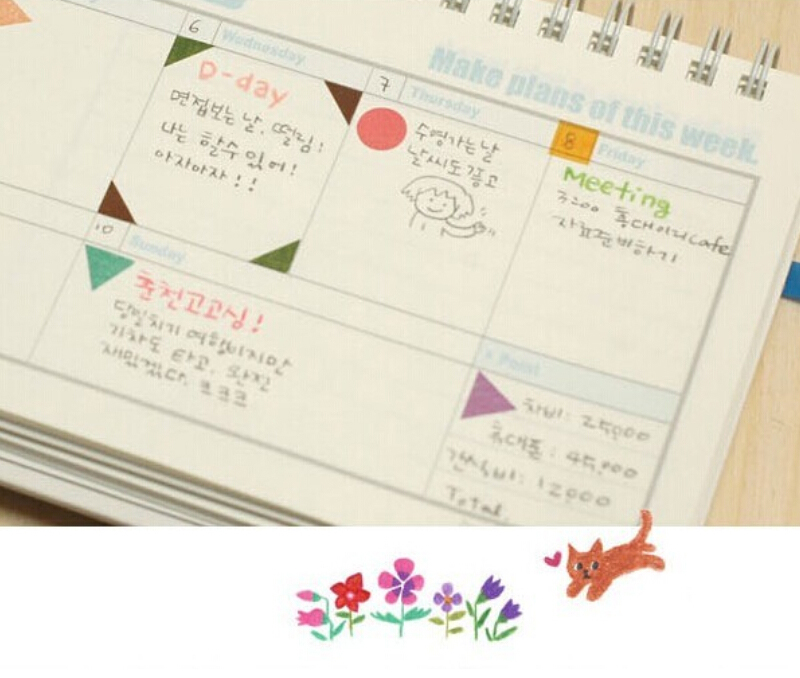 Make plans of this week.
6 Wednesday
D-day
면접보는 날, 떨림!
나는 할수 있어!
아자아자!!
7 Thursday
수영가는 날
날씨도 좋고
8 Friday
Meeting
3:00 홍대이리cafe
자료준비하기
10 Sunday
춘천고고싱!
당일치기 여행이지만
기차도 타고, 완전
재밌겠다. ㅋㅋㅋ
Point
차비: 25,000
휴대폰: 45,000
간식비: 12,000
Total.